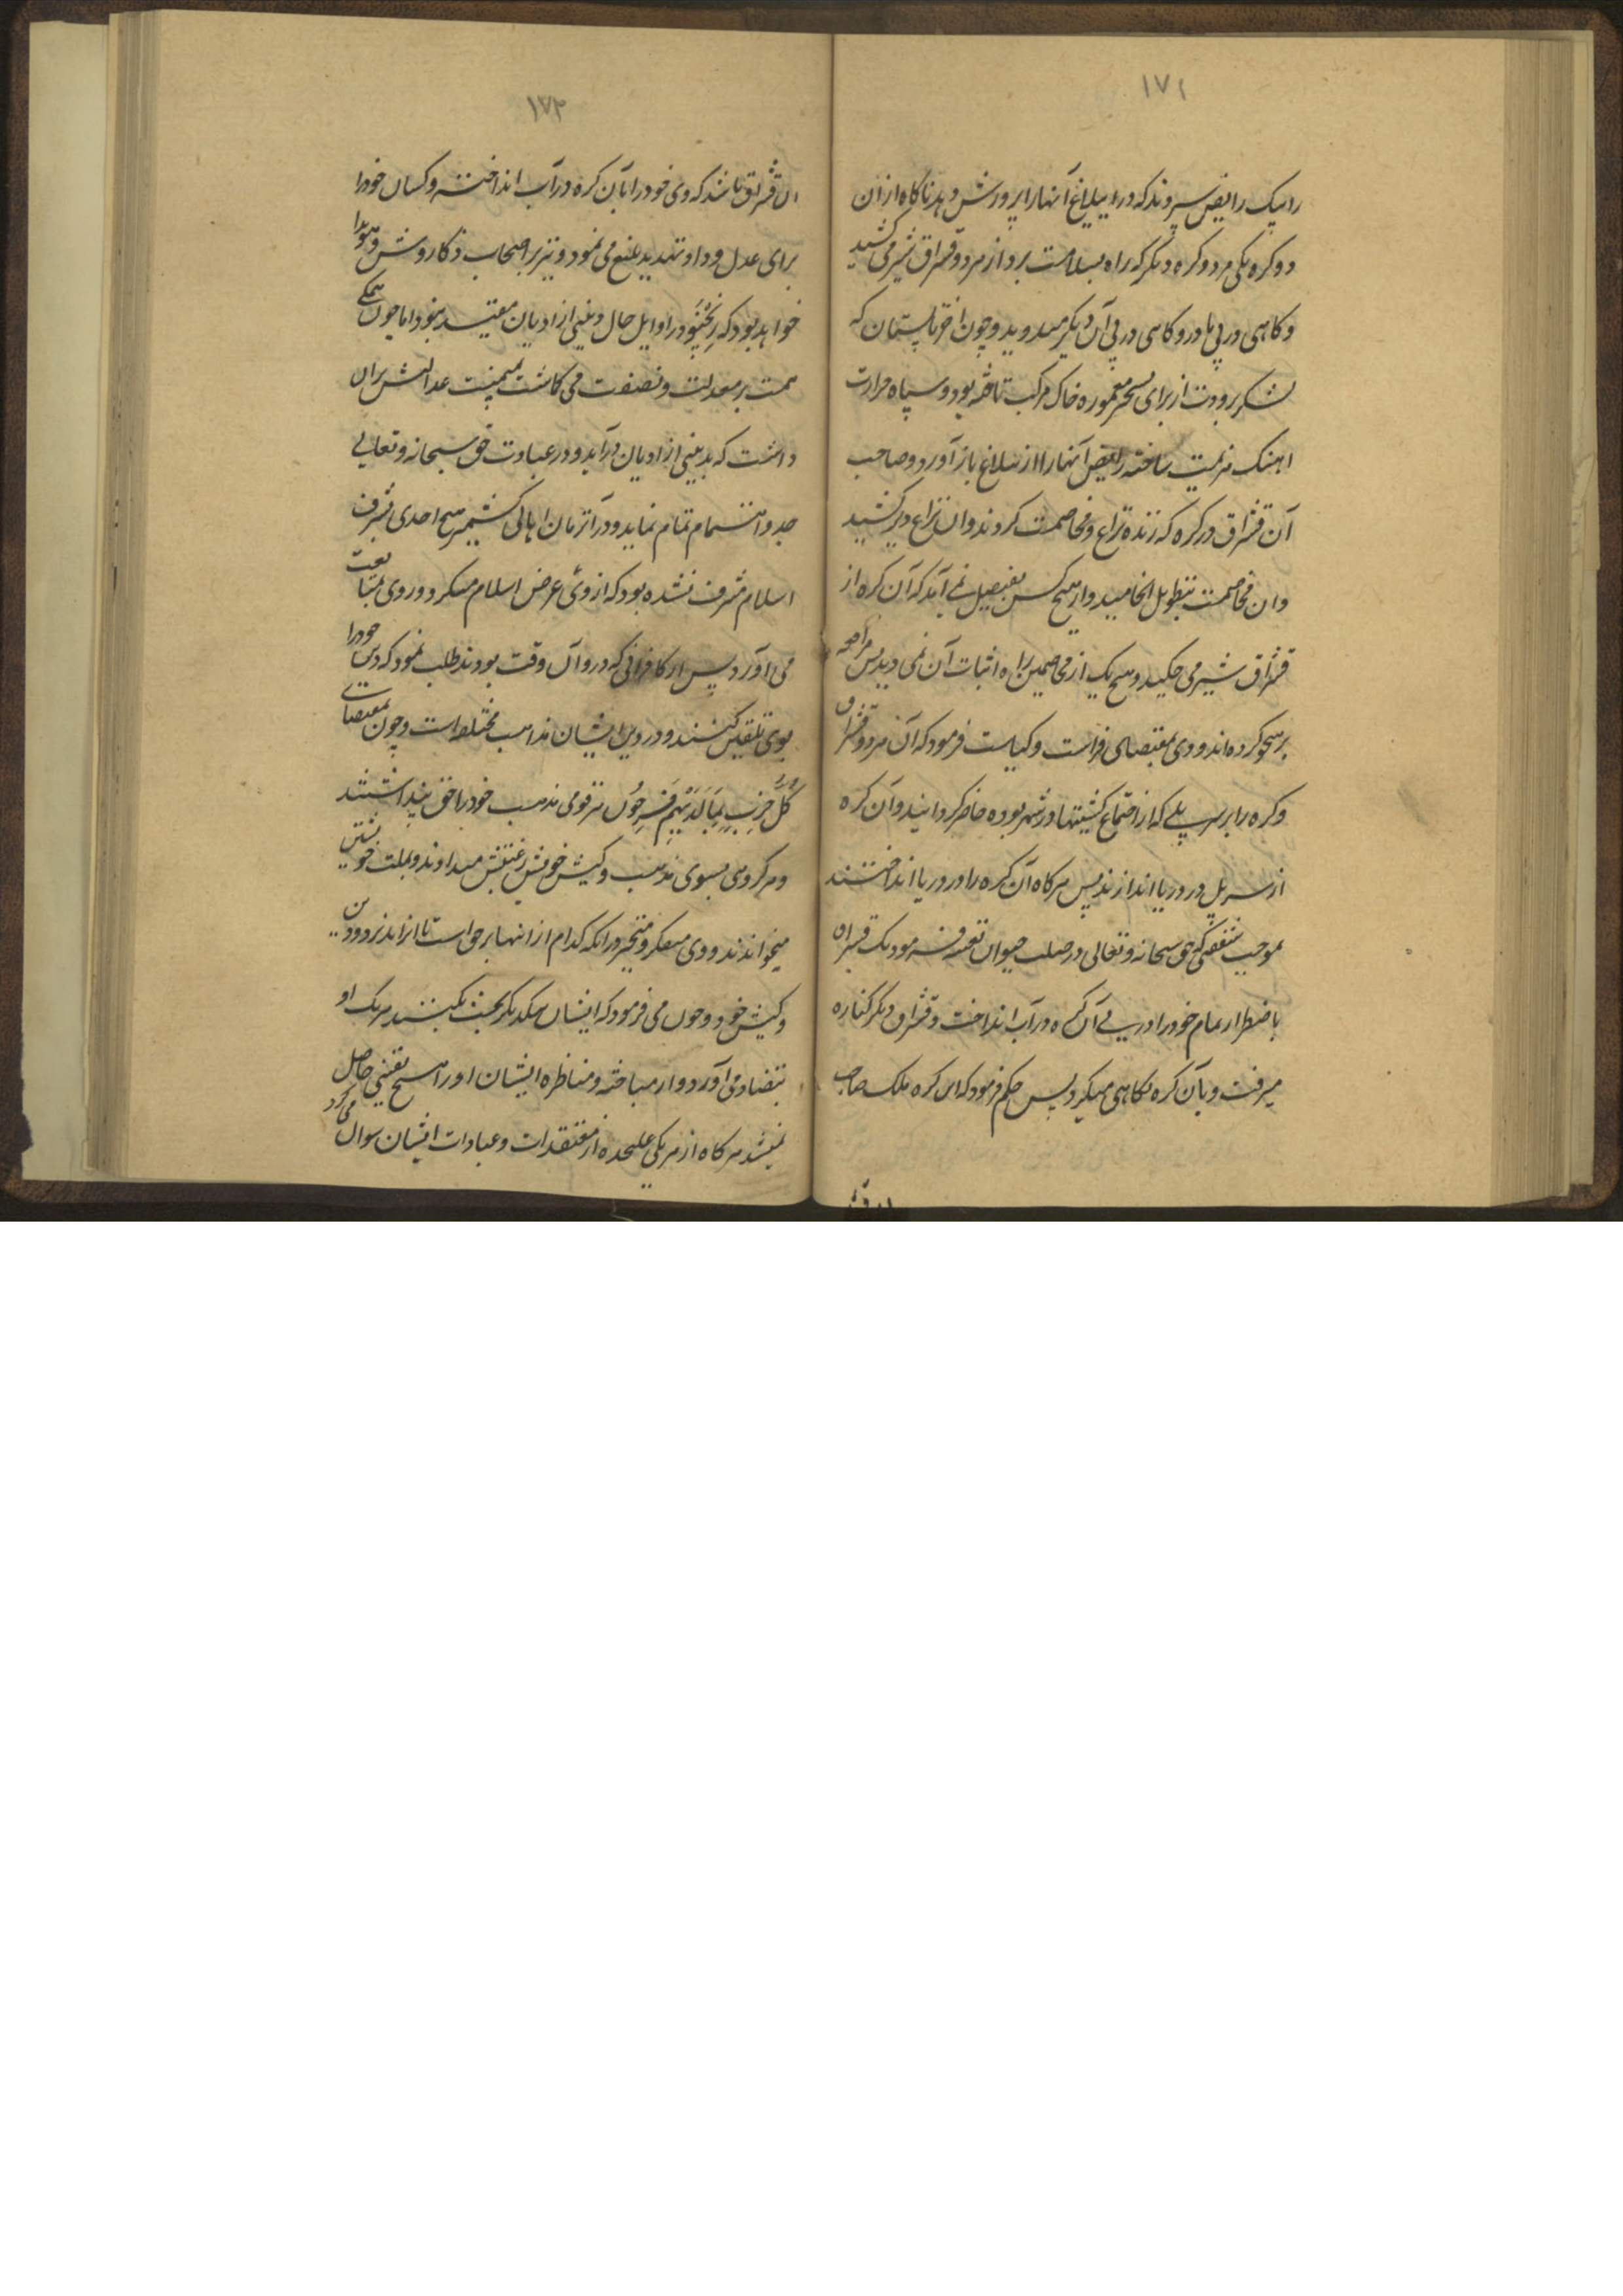 ۱۷۱
را بیک رایض سپردند که در ییلاغ آنها را پرورش دهد ناکاه از ان
دو کره یکی مرد و کره دیکر که راه بسلامت برد از هر دو قسراق شیر می کشید
و کاهی در پی مادر و کاهی در پی آن دیکر میدوید و چون اخر تابستمان که
لشکر برودت از برای تسخیر معموره خاک مرکب تاخته بود و سپاه حرارت
اهنک هزیمت ساخته رایض آنها را از ییلاغ باز آورد و صاحب
آن قسراق در کره که زنده نزاع و مخاصمت کردند وان نزاع دیر کشید
وان مخاصمت بتطویل انجامید و از هیچ کس بفیصل نمی آمد که آن کره از
قسراق شیر می مکید و هیچ یک از مخاصمین راه اثبات آن نمی دید پس مرافعه
برنجو کرده اند و وی بمقتضای فراست و کیاست فرمود که آن هر دو قسراق
و کره را بر سر پلی که از اجتماع کشتیها در شهر بوده حاضر کردانیدند و آن کره
از سر پل در دریا اندازند پس هر کاه آن کره را در دریا انداختند
بموجب شفقتی که حق سبحانه و تعالی در صلب حیوان تعبیه فرمود یک قسراق
باضطرار تمام خود را در پی آن کره در آب انداخت و قسراق دیکر کناره
میرفت و بآن کره نکاهی میکرد پس حکم فرمود که این کره ملک صاحب
۱۷۲
ان قسراق باشد که وی خود را بآن کره در آب انداخته و کسان خود را
برای عدل و داد تهدید بلیغ می نمود و نیز بر اصحاب ذکا روشن و هویدا
خواهد بود که رنجو در اوایل حال و بدینی از ادیان مقید نبود اما چون همکی
همت بر معدلت و نصفت می کاشت بمیمنت عدالتش بران
داشت که بدینی از ادیان درآید و در عبادت حق سبحانه و تعالی
جد و اهتمام تمام نماید و در آنزمان اهالی کشمیر هیچ احدی بشرف
اسلام مشرف نشده بود که از وی عرض اسلام میکرد و روی بمتابعت
می آورد پس از کافرانی که در وان وقت بودند طلب نمود که دین خود را
بوی تلقین کنند و در دین ایشان مذاهب مختلط است و چون بمقتضای
کُلُّ حِزْبٍ بِمَا لَدَیْهِمْ فَرِحُونَ هر قومی مذهب خود را حق پنداشتند
و هر کروهی بسوی مذهب و کیش خویش رغبتش میدادند و بملت خویشتن
میخواندند و وی متفکر و متحیر در آنکه کدام از اینها بر حق است تا انرا پذیرد و دین
و کیش خود و چون می فرمود که ایشان بیکدیکر بحث بکنند هر یک او
بتضاد می آورد و از مباحثه و مناظره ایشان او را هیچ یقینی حاصل
نمیشد هر کاه از هر یکی علیحده از معتقدات و عبادات ایشان سوال می کرد